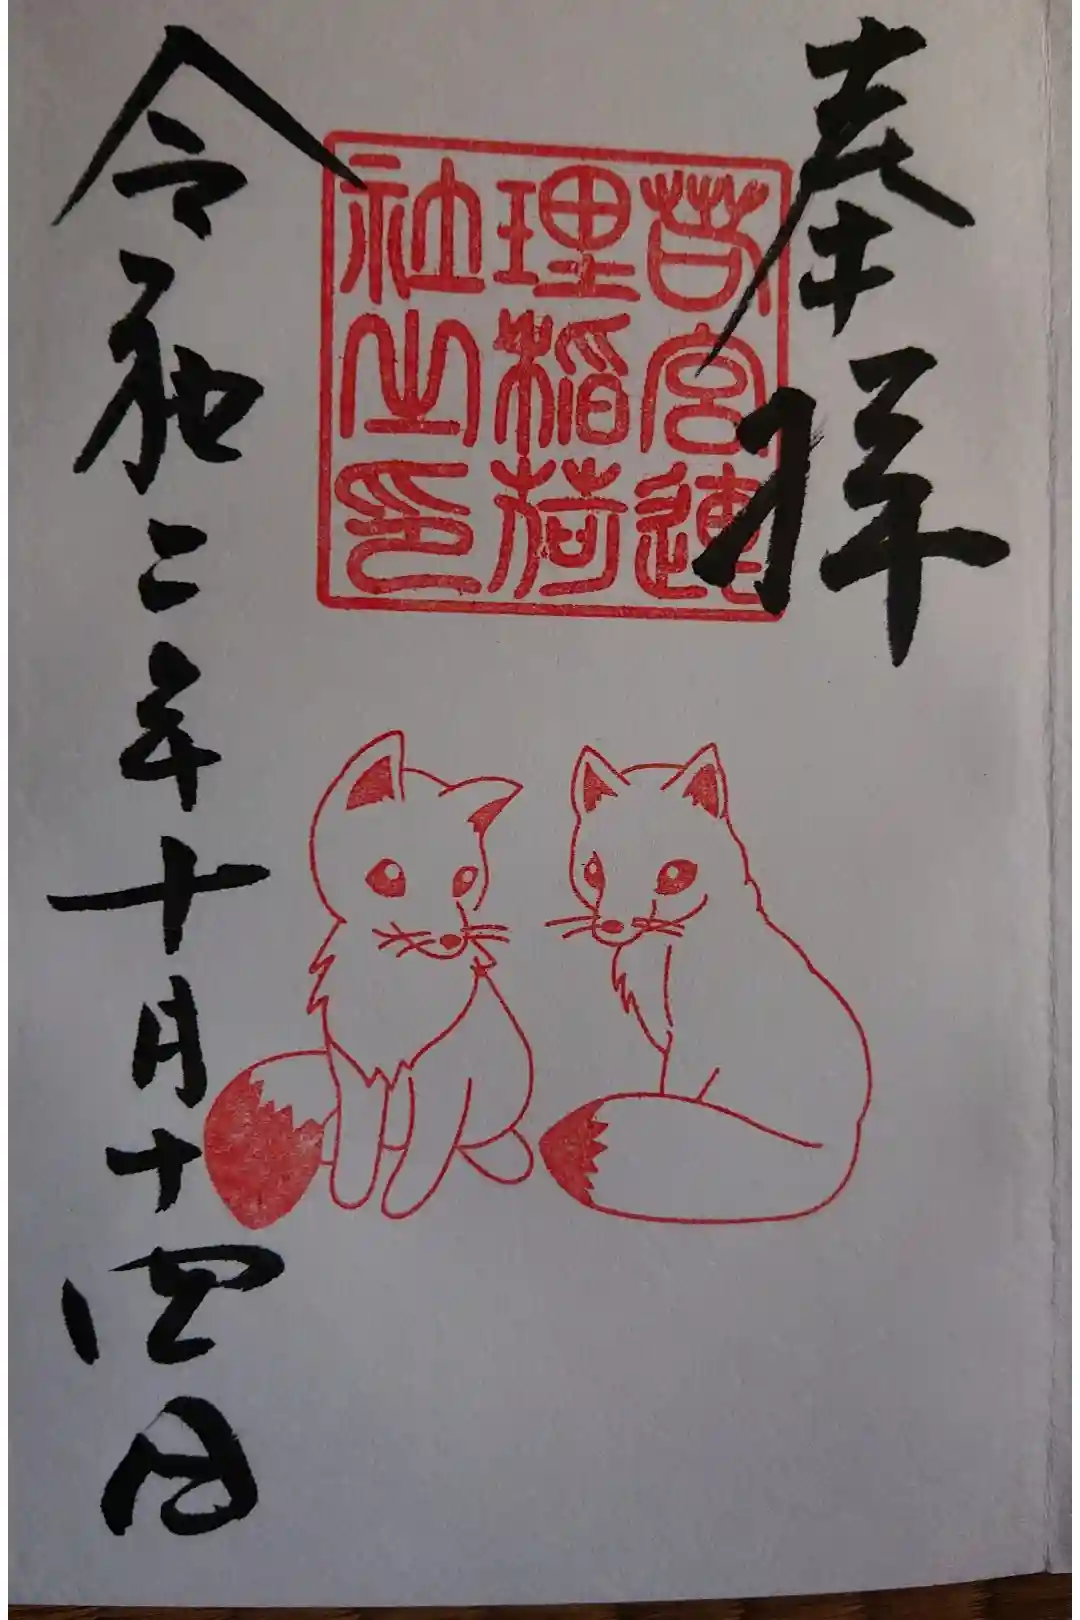 奉拝
若宮連
理稲荷
社之印
令和二年十月十四日